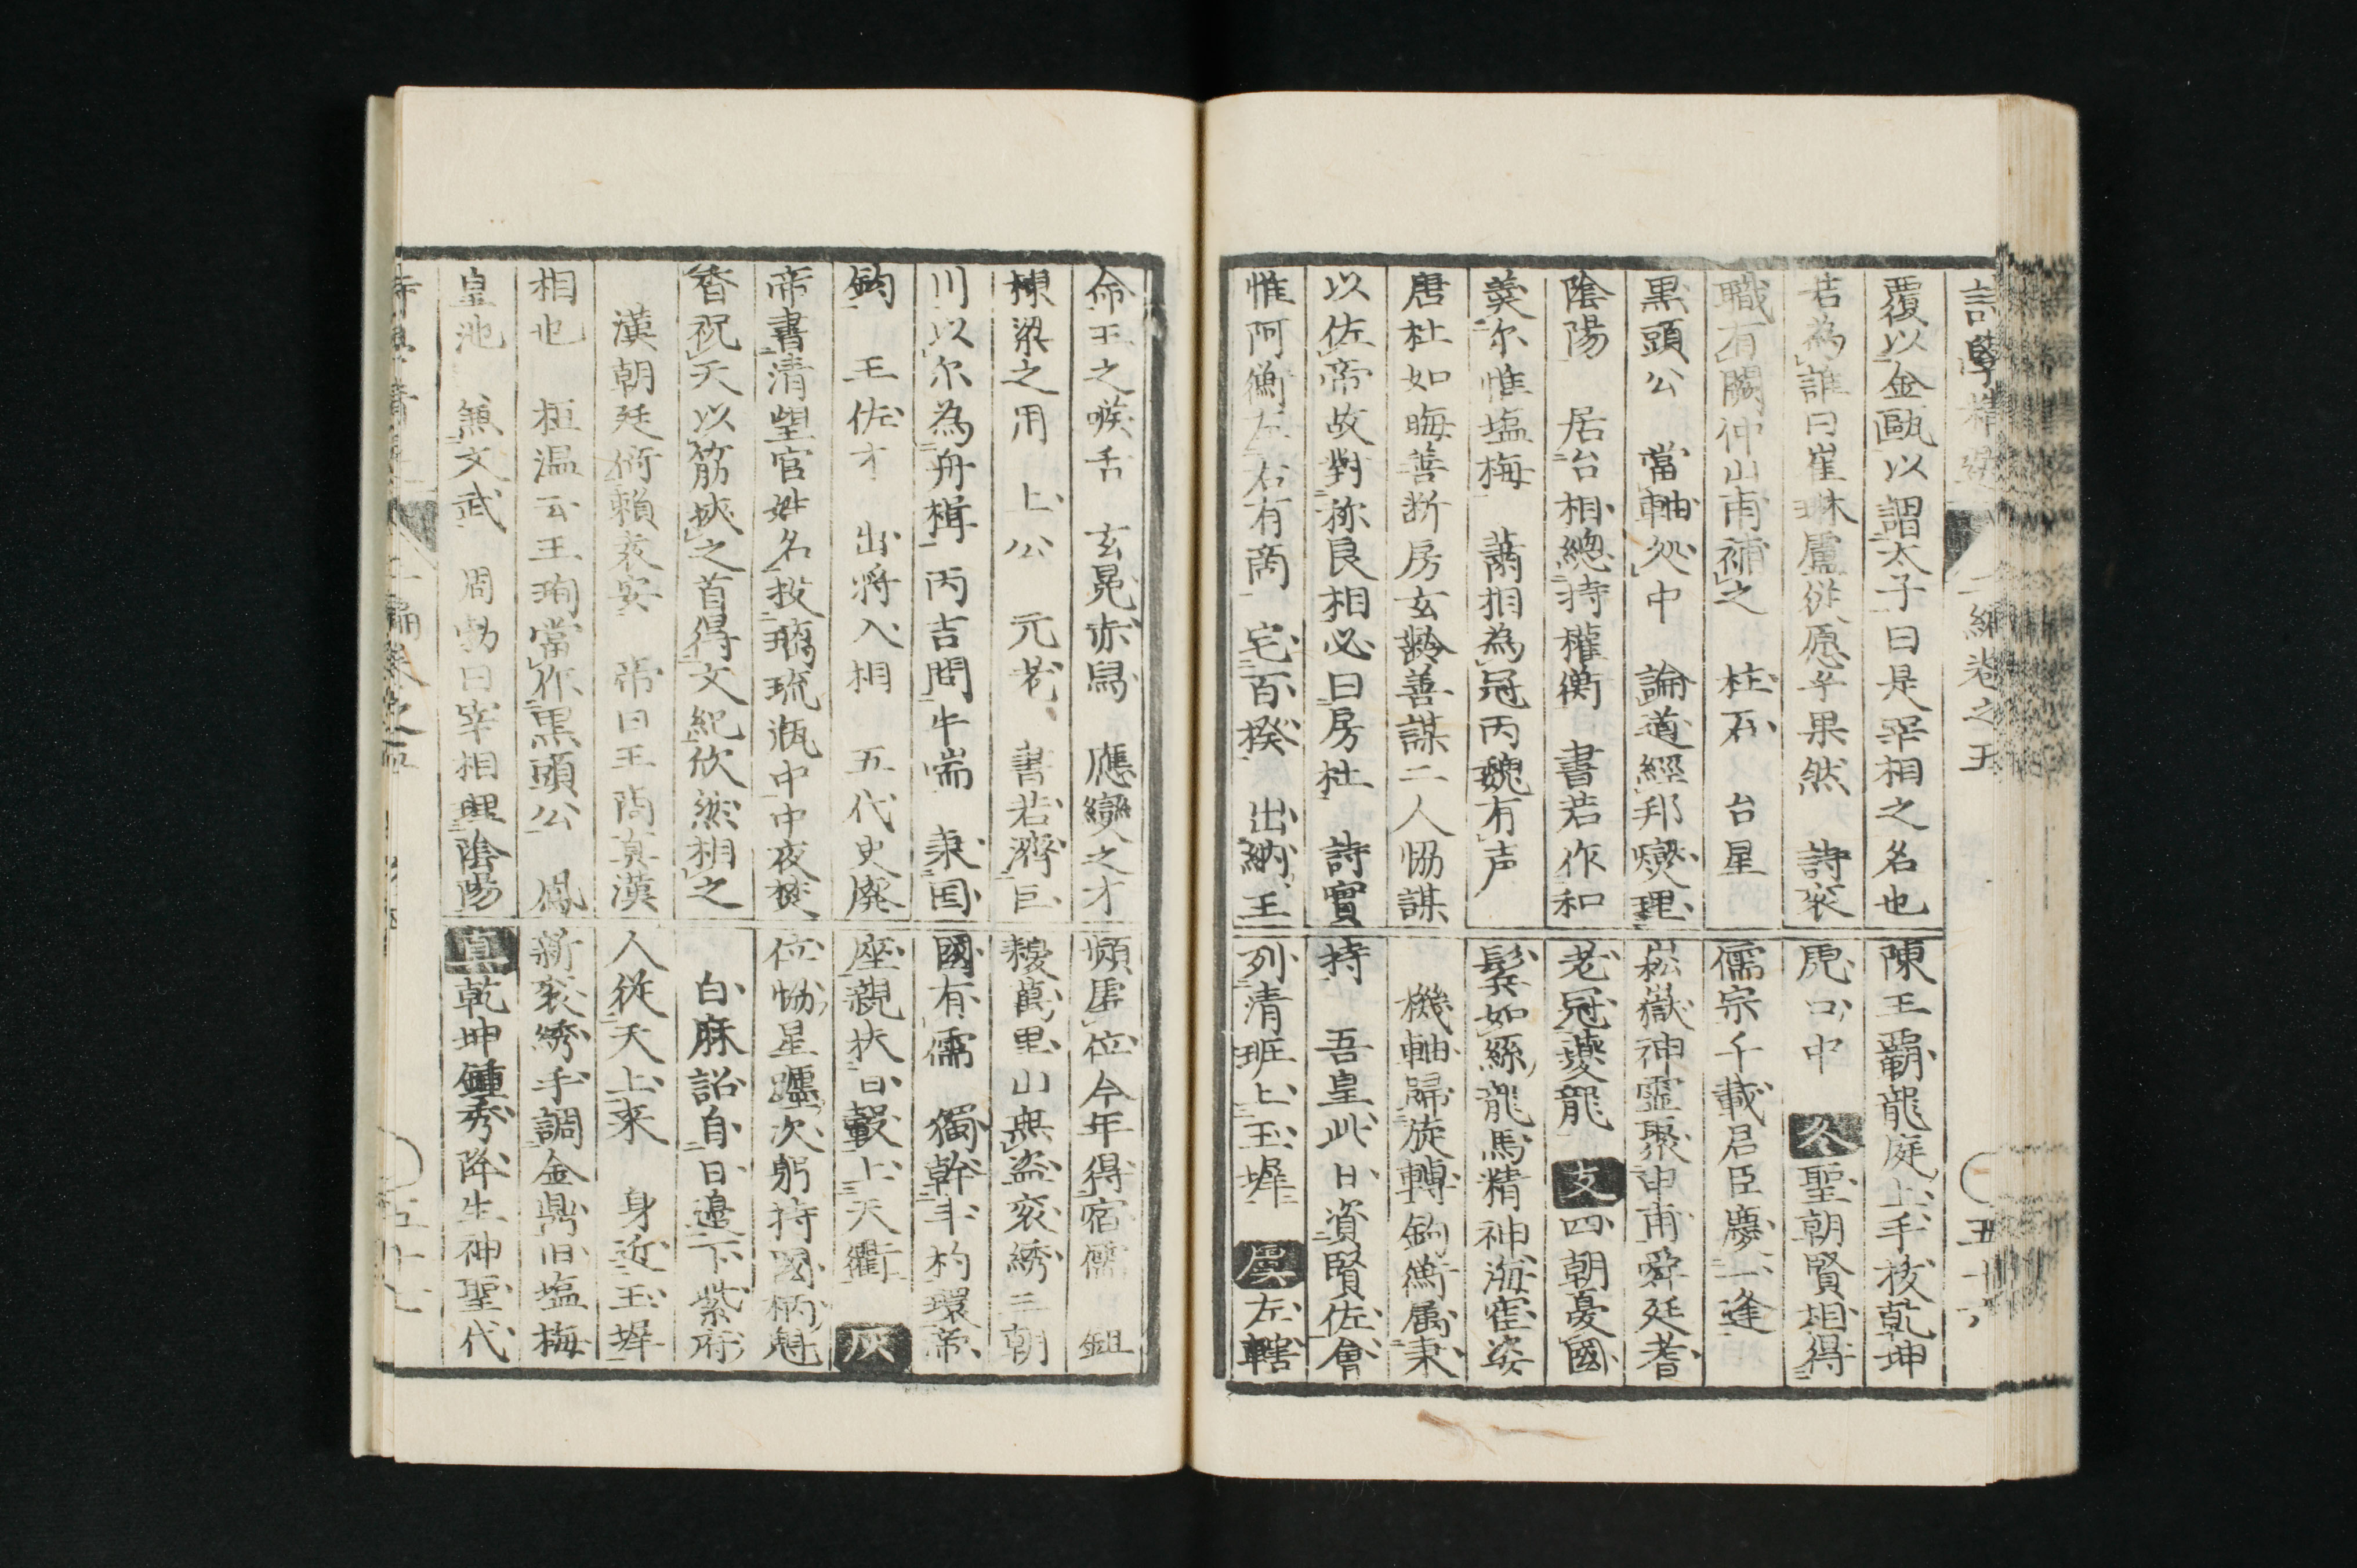 覆以金甌以謂太子曰是宰相之名也
若為誰曰崔琳盧從愿乎果然　詩衮
職有闕仲山甫補之　柱石　台星
黒頭公　當軸処中　論道經邦燮理
陰陽　居台相總持權衡　書若作和
羮尓惟塩梅　蕭相為冠丙魏有声
唐杜如晦善断房玄齡善謀二人恊謀
以佐帝故對称良相必曰房杜　詩實
惟阿衡左右有商　宅百揆　出納王
陳王覇龍庭上手扶乾坤
虎口中　冬　聖朝賢相得
儒宗千載君臣慶一逢
崧嶽神霊聚申甫舜廷耆
老冠夔龍　支　四朝憂國
鬂如絲龍馬精神海寉姿
機軸歸旋轉鈞衡属秉
持　吾皇此日資賢佐會
列清班上玉墀　虞　左轄
詩學　二編卷之五　五十六
命王之喉舌　玄冕赤舄　應變之才
棟梁之用　上公　元老　書若濟巨
川以尓為舟楫　丙吉問牛喘　秉国
鈞　王佐才　出将入相　五代史廃
帝書清望官姓名投瑠琉瓶中中夜焚
香祝天以筯挾之首得文紀欣然相之
漢朝廷倚頼袁安　帝曰王商真漢
相也　桓温云王珣當作黒頭公　鳳
皇池　兼文武　周勃曰宰相理陰陽
頻虚位今年得宿儒　鉏
耰萬里山無盗衮綉三朝
國有儒　獨斡斗杓環帝
座親扶日轂上天衢　灰
位恊星躔次躬持國柄魁
白麻詔自日邉下紫府
人從天上来　身近玉墀
新衮綉手調金鼎旧塩梅
真　乾坤鍾秀降生神聖代
五十七